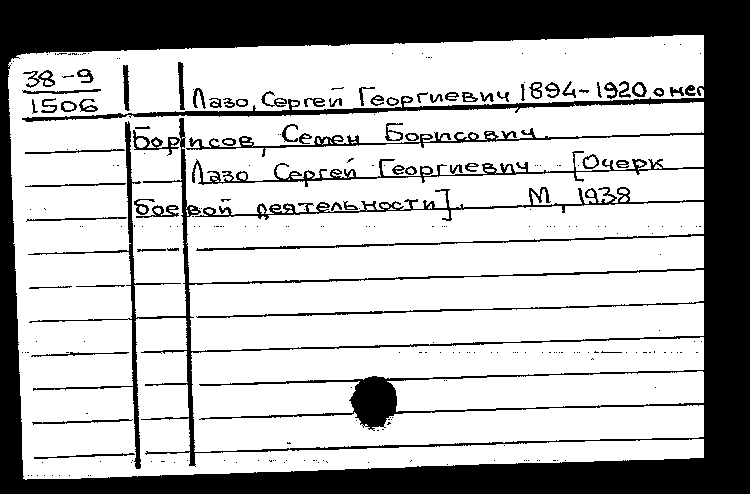 38-9
1506
Лазо, Сергей Георгиевич, 1894-1920, о нем
Борисов, Семен Борисович.
Лазо Сергей Георгиевич. [Очерк
боевой деятельности]. М., 1938